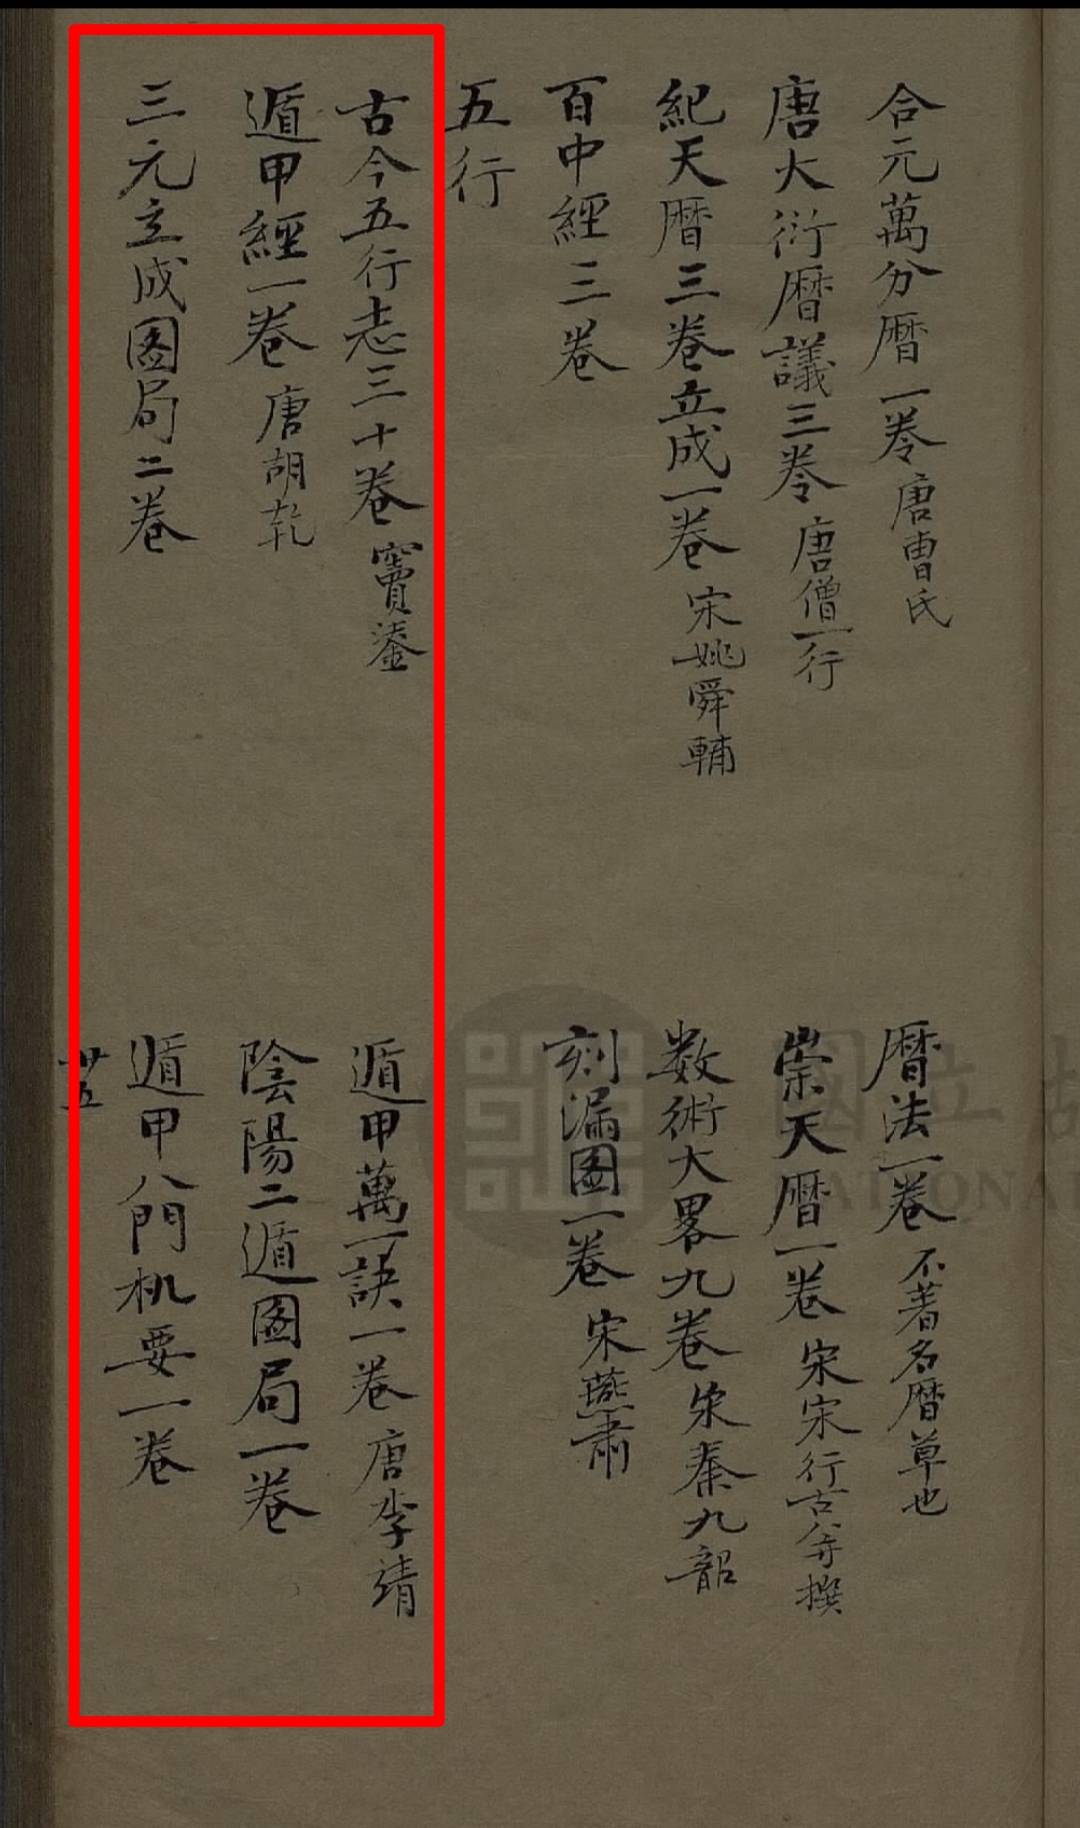 合元萬分曆一卷 唐曹氏
曆法一卷 不著名曆草也
唐大衍曆議三卷 唐僧一行
崇天曆一卷 宋宋行古等撰
紀天曆三卷立成一卷 宋姚舜輔
数術大畧九卷 宋秦九韶
百中經三卷
刻漏圖一卷 宋燕肅
五行
古今五行志三十卷 竇塗
遁甲萬一訣一卷 唐李靖
遁甲經一卷 唐胡乾
陰陽二遁圖局一卷
三元立成圖局二卷
遁甲八門机要一卷
廿五